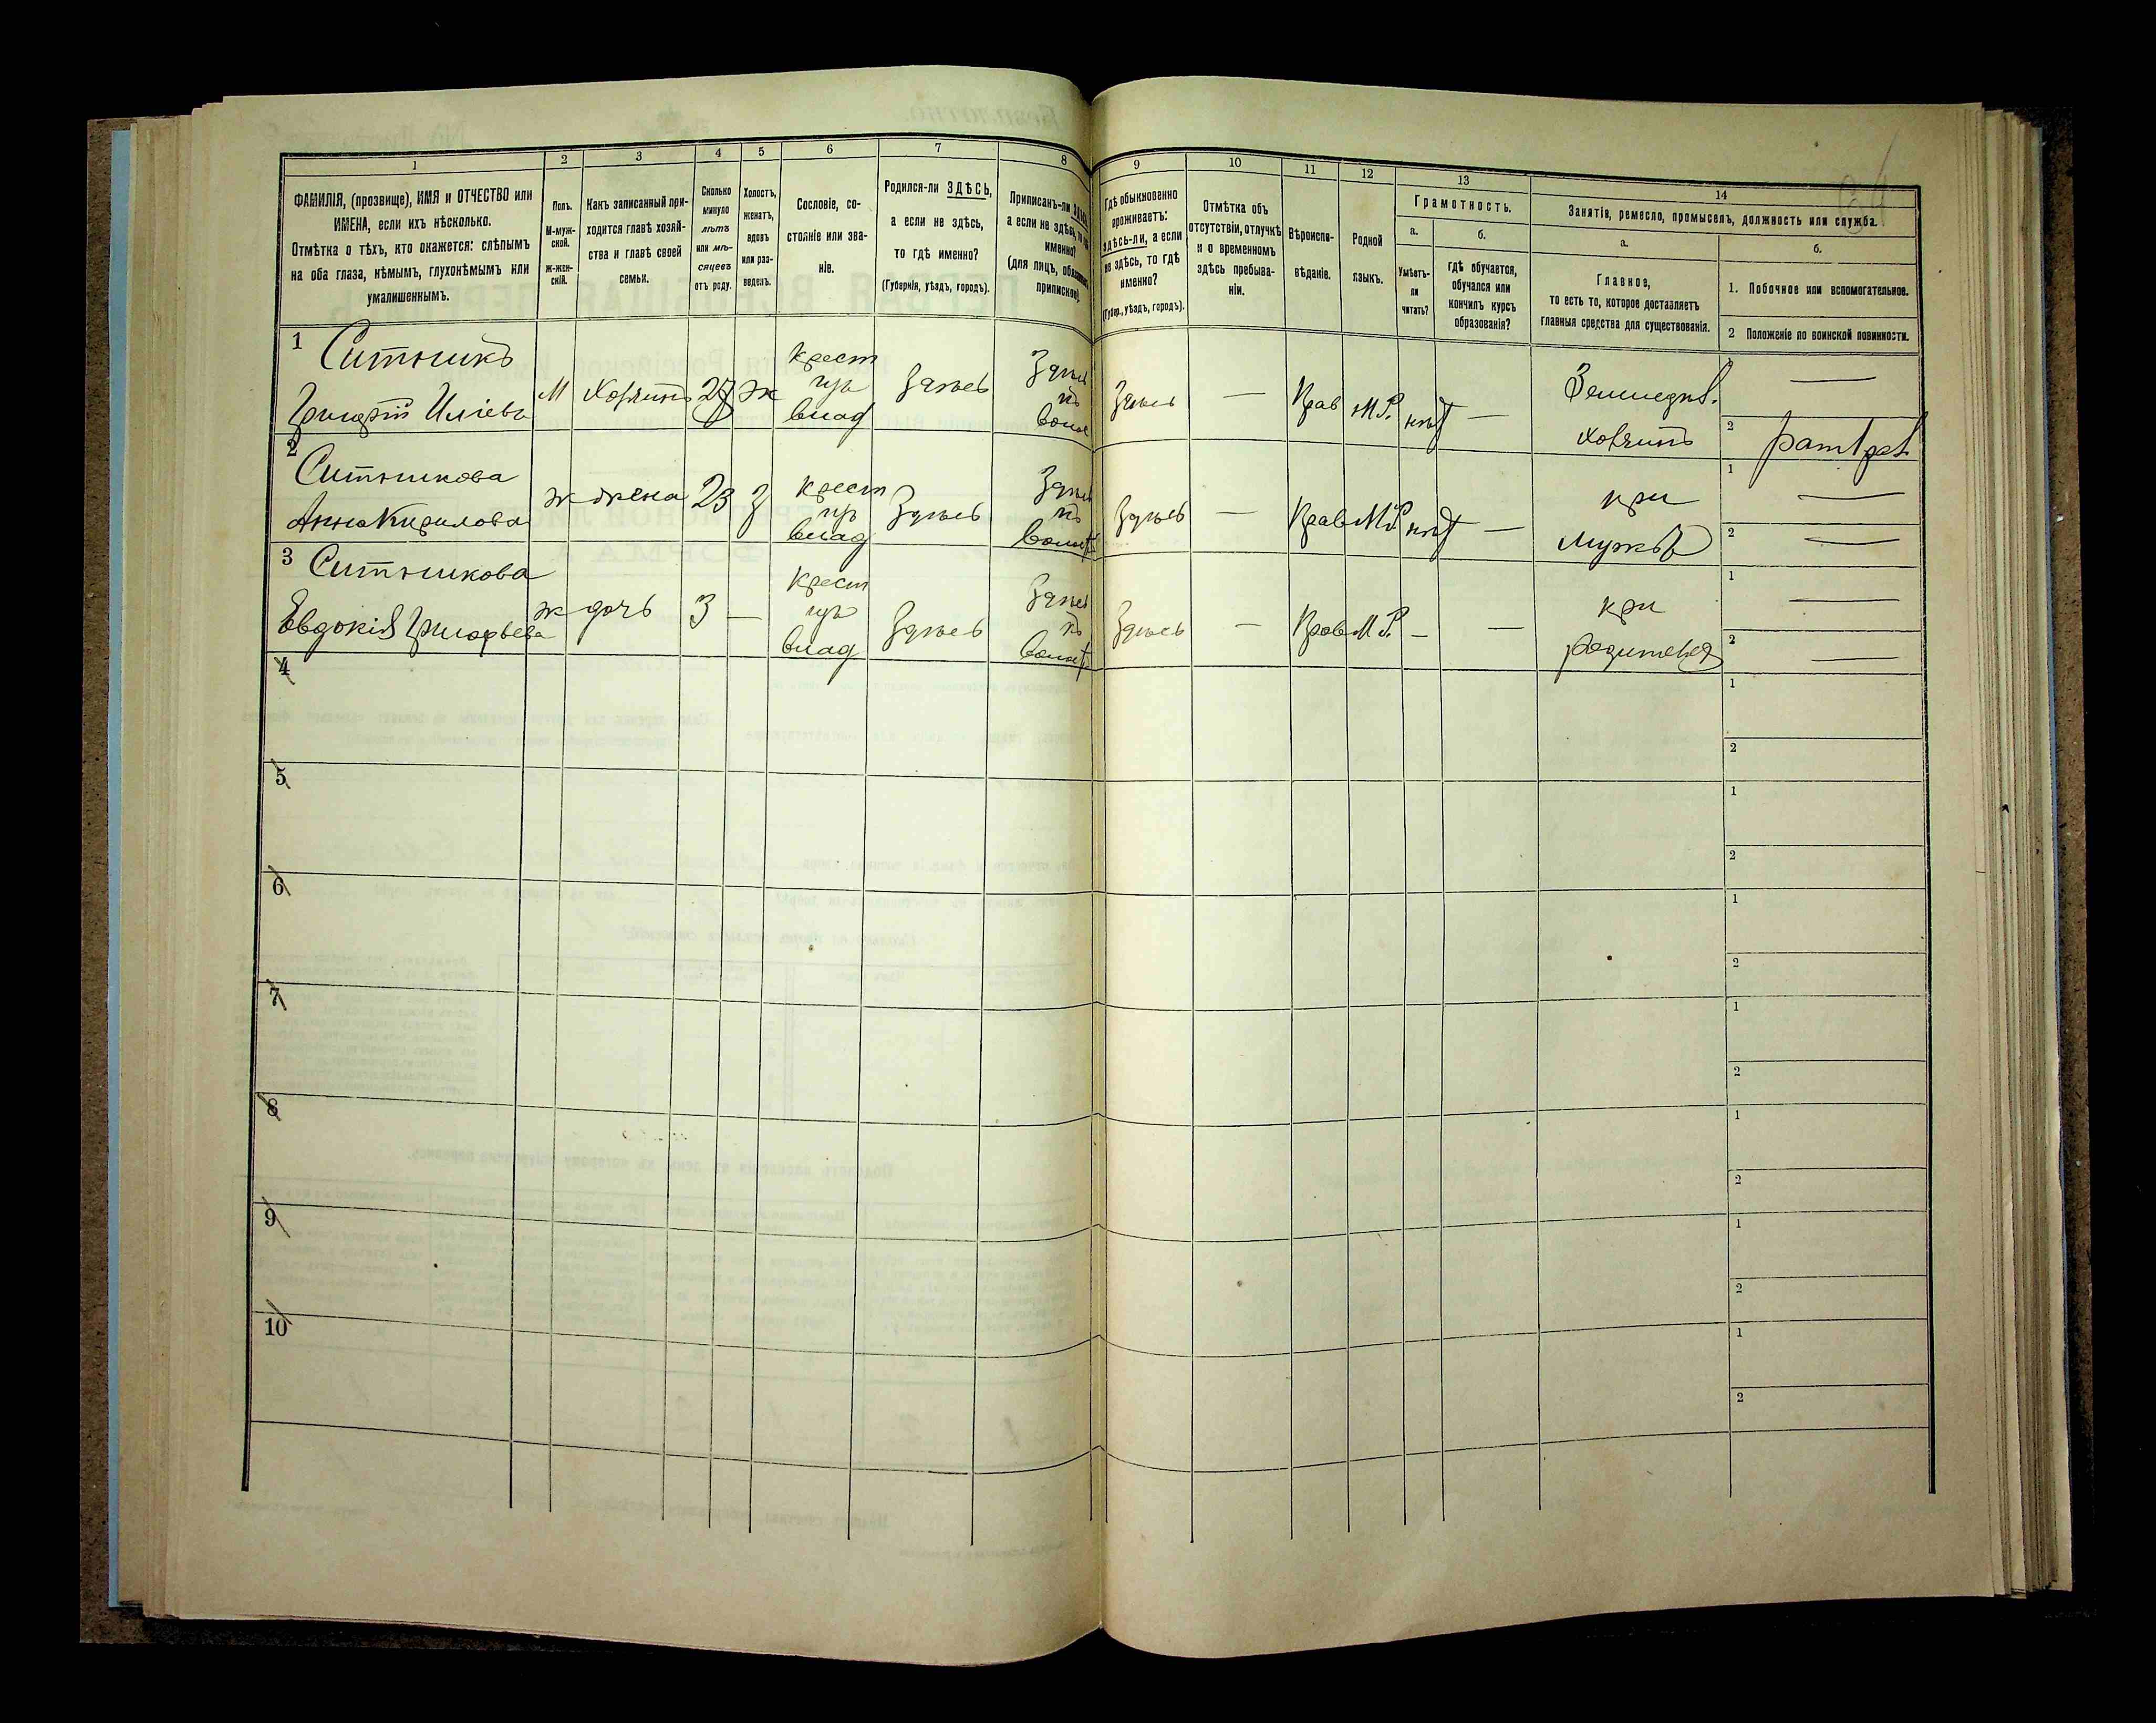 1
2
3
4
5
6
7
8
ФАМИЛІЯ, (прозвище), ИМЯ и ОТЧЕСТВО или
ИМЕНА, если ихъ нѣсколько.
Отмѣтка о тѣхъ, кто окажется: слѣпымъ
на оба глаза, нѣмымъ, глухонѣмымъ или
умалишеннымъ.
Полъ.
М-муж-
ской.
ж-жен-
скій.
Какъ записанный при-
ходится главѣ хозяй-
ства и главѣ своей
семьи.
Сколько
минуло
лѣтъ
или мѣ-
сяцевъ
отъ роду.
Холостъ,
женатъ,
вдовъ
или раз-
веденъ.
Сословіе, со-
стояніе или зва-
ніе.
Родился-ли ЗДѢСЬ,
а если не здѣсь,
то гдѣ именно?
(Губернія, уѣздъ, городъ).
Приписанъ-ли
а если не здѣсь,
именно?
(для лицъ,
припискою).
9
10
11
12
13
14
Гдѣ обыкновенно
проживаетъ:
здѣсь-ли, а если
не здѣсь, то гдѣ
именно?
(Губер., уѣздъ, городъ).
Отмѣтка объ
отсутствіи, отлучкѣ
и о временномъ
здѣсь пребыва-
ніи.
Вѣроиспо-
вѣданіе.
Родной
языкъ.
Грамотность.
а.
б.
Умѣетъ-
ли
читать?
гдѣ обучается,
обучался или
кончилъ курсъ
образованія?
Занятія, ремесло, промыселъ, должность или служба.
а.
б.
Главное,
то есть то, которое доставляетъ
главныя средства для существованія.
1. Побочное или вспомогательное.
2 Положеніе по воинской повинности.
1
Ситникъ
Григорій Иліевъ
М Хозяинъ 27 ж
крест
изъ
влад
Здѣсь
Здѣсь
въ
волос
Здѣсь — Прав М.Р. нѣт —
Земледѣл.
Хозяинъ
—
2
2
Ситникова
Анна Кирилова
ж жена 23 З
крест
изъ
влад
Здѣсь
Здѣсь
въ
волост
Здѣсь — Прав М.Р. нѣт —
при
мужѣ
1 —
2 —
3
Ситникова
Евдокія Григорьева
ж дочь 3 —
крест
изъ
влад
Здѣсь
Здѣсь
въ
волост
Здѣсь — Прав М.Р. — —
при
родителях
1 —
2 —
4
1
2
5
1
2
6
1
2
7
1
2
8
1
2
9
1
2
10
1
2